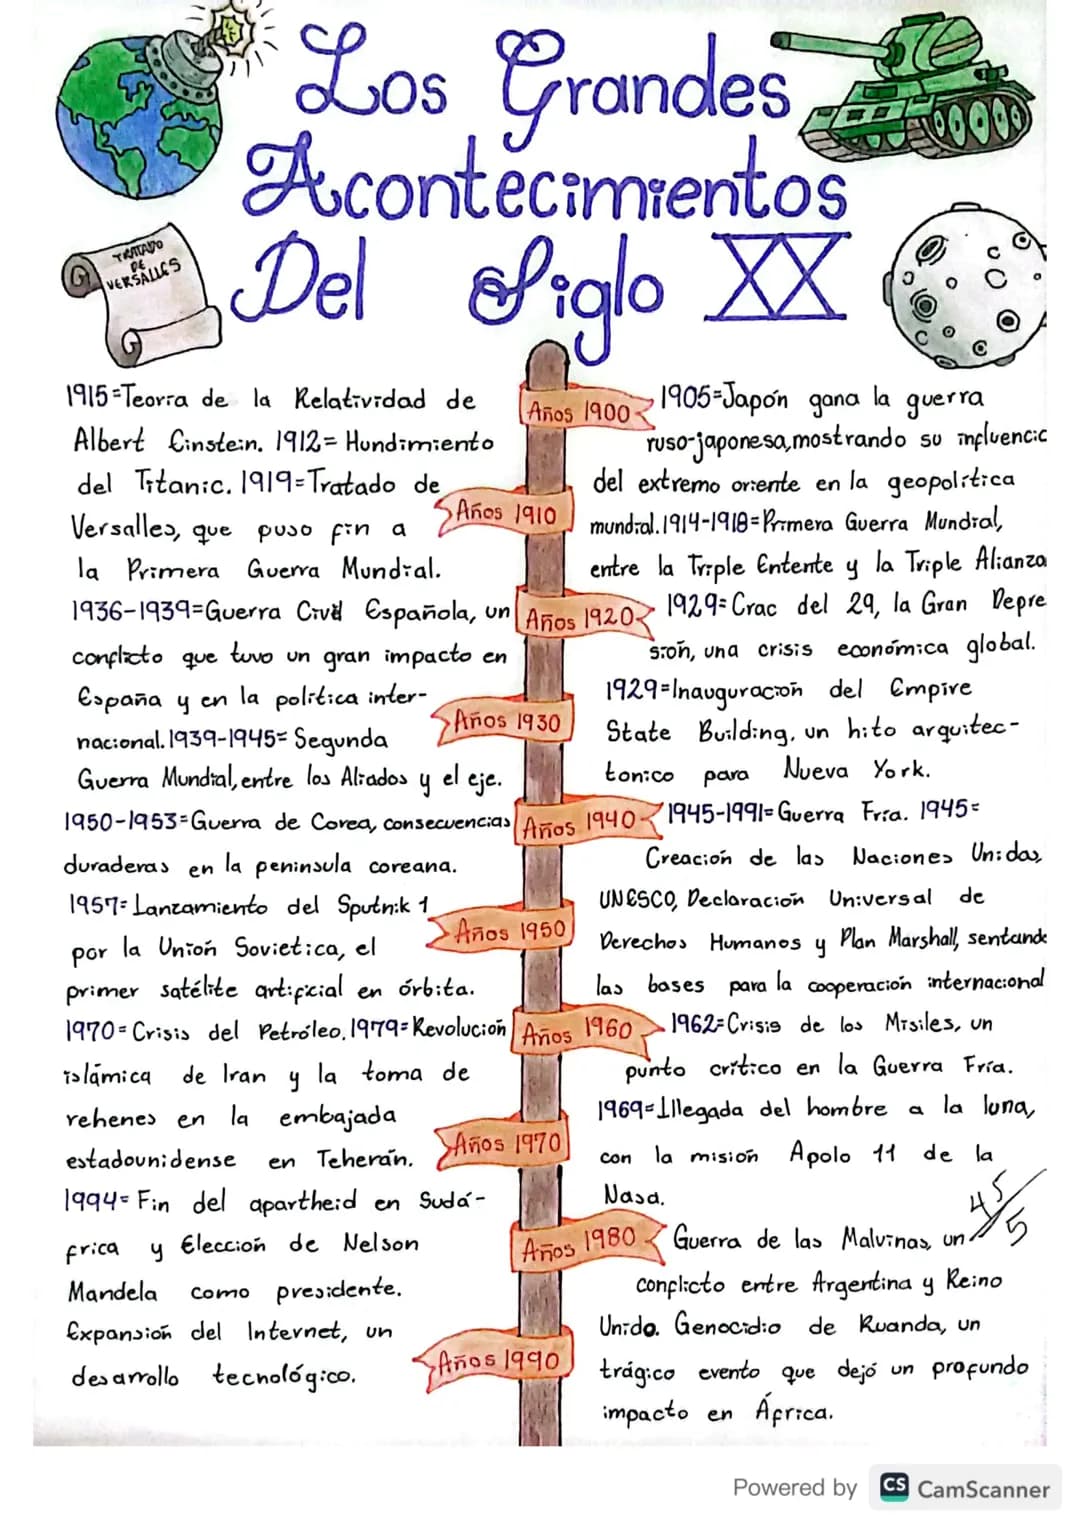 Los Grandes
Acontecimientos
Del Siglo XX
TRATADO
DE
VERSALLES
1915=Teoría de la Relatividad de
Albert Einstein. 1912= Hundimiento
del Titanic. 1919=Tratado de
Versalles, que puso fin a
la Primera Guerra Mundial.
1936-1939=Guerra Civil Española, un
conflicto que tuvo un gran impacto en
España y en la política inter-
nacional. 1939-1945= Segunda
Guerra Mundial, entre los Aliados y el eje.
1950-1953=Guerra de Corea, consecuencias
duraderas en la peninsula coreana.
1957= Lanzamiento del Sputnik 1
por la Unión Sovietica, el
primer satélite artificial en órbita.
1970= Crisis del Petróleo. 1979= Revolución
islámica de Iran y la toma de
rehenes en la embajada
estadounidense en Teherán.
1994= Fin del apartheid en Sudá-
frica y Elección de Nelson
Mandela como presidente.
Expansión del Internet, un
desarrollo tecnológico.
Años 1900
Años 1910
Años 1920
Años 1930
Años 1940
Años 1950
Años 1960
Años 1970
Años 1980
Años 1990
1905=Japón gana la guerra
ruso-japonesa, mostrando su influencic
del extremo oriente en la geopolítica
mundial. 1914-1918=Primera Guerra Mundial,
entre la Triple Entente y la Triple Alianza
1929= Crac del 29, la Gran Depre
sión, una crisis económica global.
1929=Inauguración del Empire
State Building, un hito arquitec-
tonico para Nueva York.
1945-1991= Guerra Fría. 1945=
Creación de las Naciones Unidas,
UNESCO, Declaración Universal de
Derechos Humanos y Plan Marshall, sentando
las bases para la cooperación internacional
1962= Crisis de los Misiles, un
punto crítico en la Guerra Fría.
1969= Lllegada del hombre a la luna,
con la misión Apolo 11 de la
Nasa.
45/5
Guerra de las Malvinas, un
conflicto entre Argentina y Reino
Unido. Genocidio de Ruanda, un
trágico evento que dejó un profundo
impacto en África.
Powered by CS CamScanner